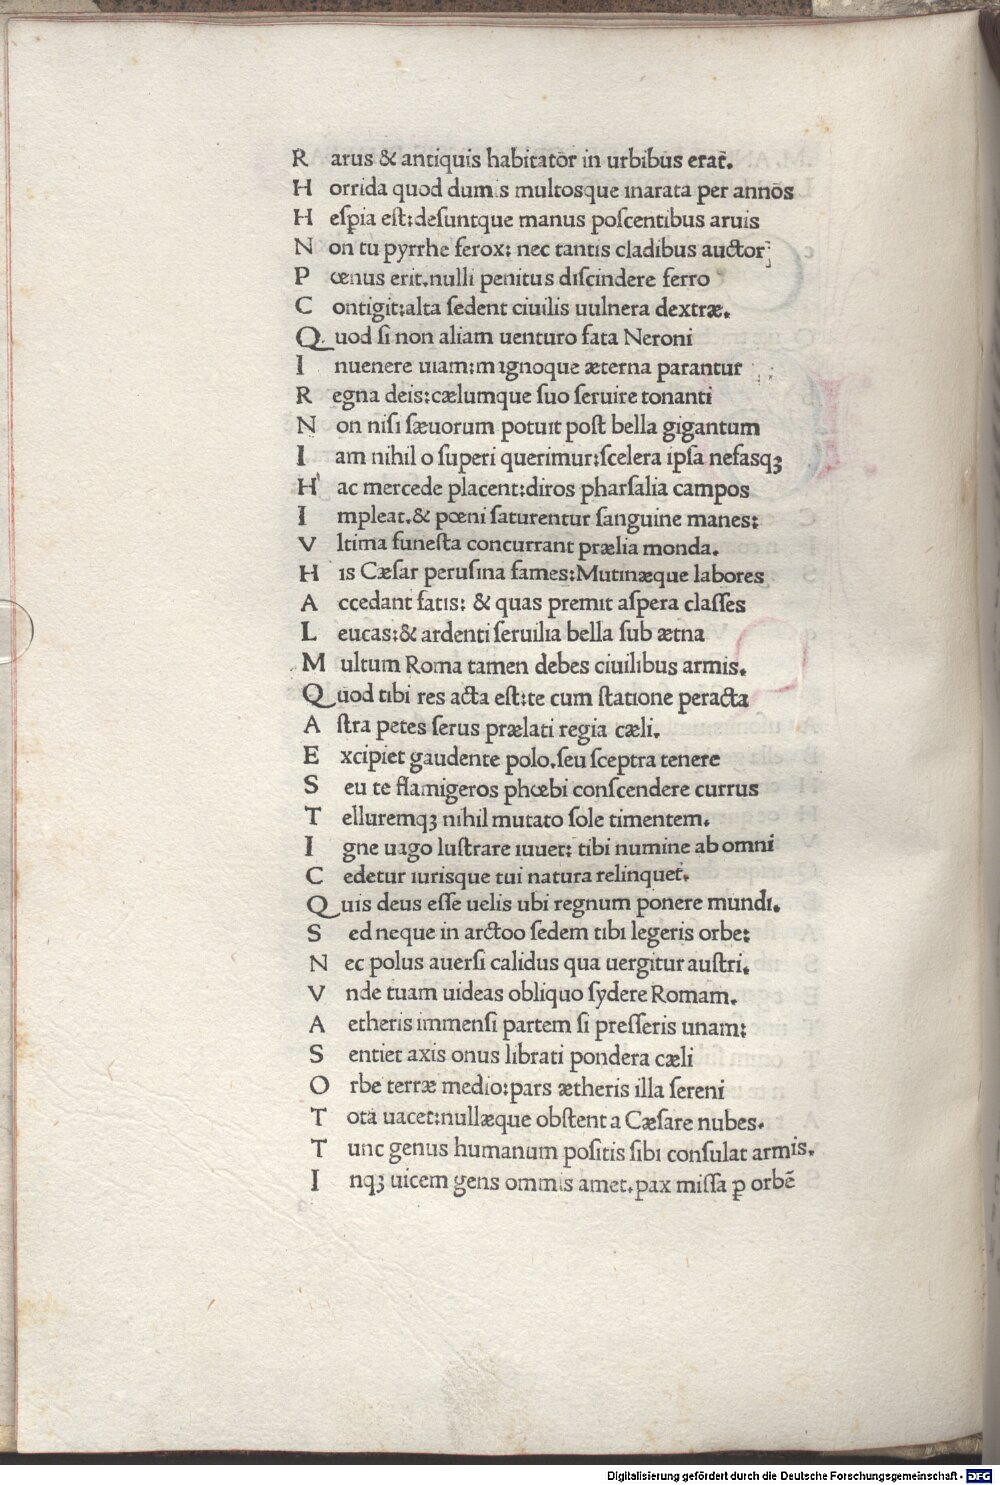 R arus & antiquis habitatōr in urbibus erat̄.
H orrida quod dumis multosque inarata per annōs
H espia est: desuntque manus poscentibus aruis
N on tu pyrrhe ferox: nec tantis cladibus auctor;
P œnus erit. nulli penitus discindere ferro
C ontigit: alta sedent ciuilis uulnera dextræ.
Q uod si non aliam uenturo fata Neroni
I nuenere uiam: mignoque æterna parantur
R egna deis: cælumque suo seruire tonanti
N on nisi sæuorum potuit post bella gigantum
I am nihil o superi querimur: scelera ipsa nefasqꝫ
H ac mercede placent: diros pharsalia campos
I mpleat. & pœni saturentur sanguine manes:
V ltima funesta concurrant prælia monda.
H is Cæsar perusina fames: Mutinæque labores
A ccedant fatis: & quas premit aspera classes
L eucas: & ardenti seruilia bella sub ætna
M ultum Roma tamen debes ciuilibus armis.
Q uod tibi res acta est: te cum statione peracta
A stra petes serus prælati regia cæli.
E xcipiet gaudente polo. seu sceptra tenere
S eu te flamigeros phœbi conscendere currus
T elluremqꝫ nihil mutato sole timentem.
I gne uago lustrare iuuet: tibi numine ab omni
C edetur iurisque tui natura relinquet.
Q uis deus esse uelis ubi regnum ponere mundi.
S ed neque in arctoo sedem tibi legeris orbe:
N ec polus auersi calidus qua uergitur austri.
V nde tuam uideas obliquo sydere Romam.
A etheris immensi partem si presseris unam:
S entiet axis onus librati pondera cæli
O rbe terræ medio: pars ætheris illa sereni
T ota uacet: nullæque obstent a Cæsare nubes.
T unc genus humanum positis sibi consulat armis.
I nqꝫ uicem gens ommis amet. pax missa ꝑ orbē
Digitalisierung gefördert durch die Deutsche Forschungsgemeinschaft - DFG